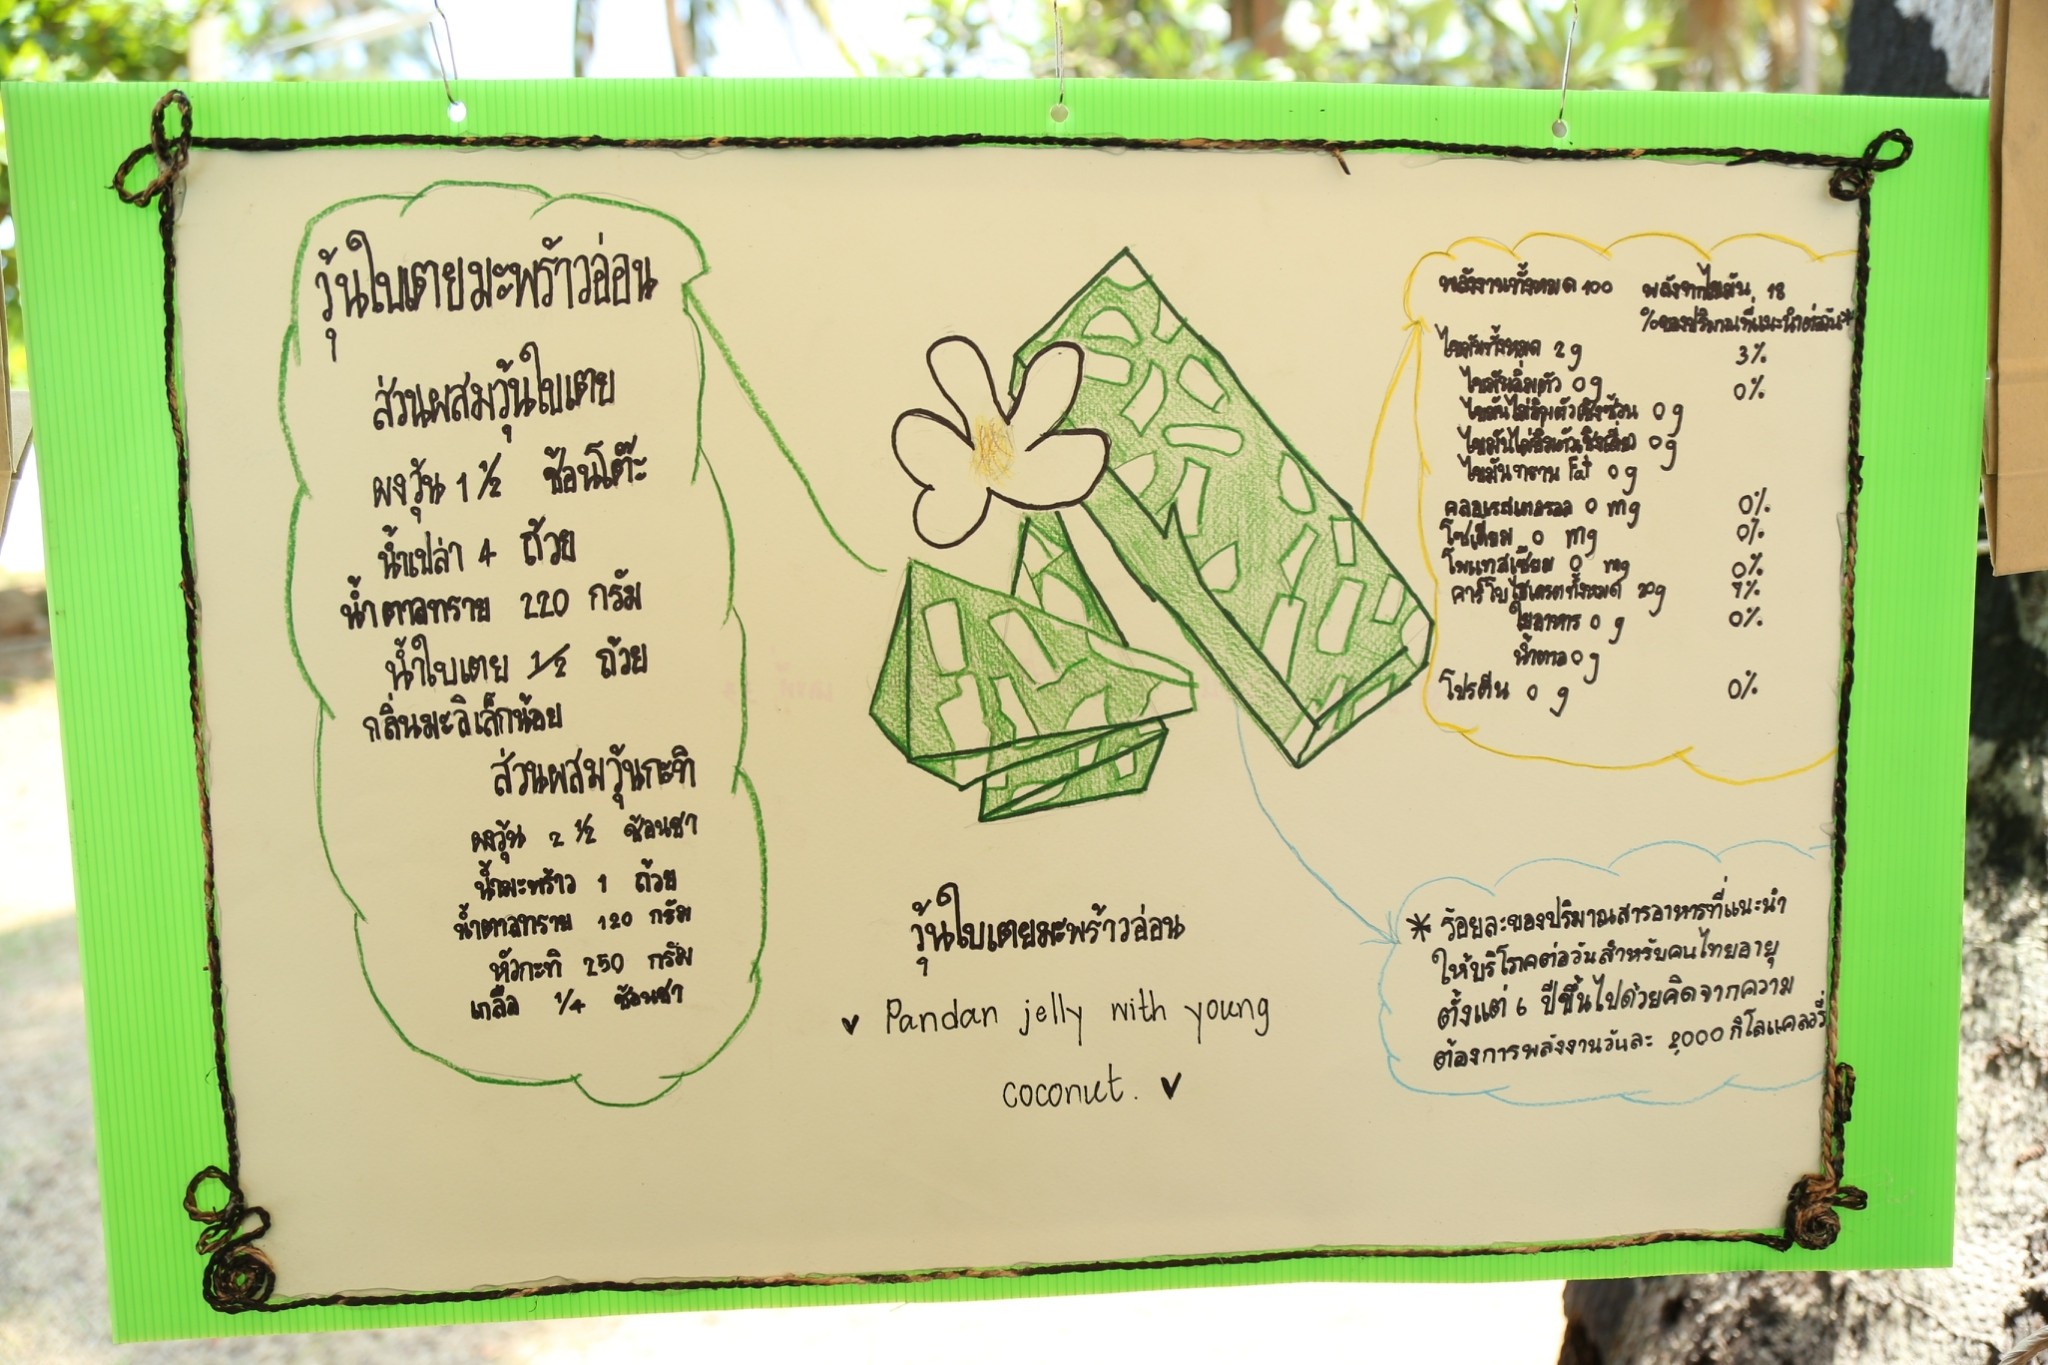 วุ้นใบเตยมะพร้าวอ่อน
ส่วนผสมวุ้นใบเตย
ผงวุ้น 1 ½ ช้อนโต๊ะ
น้ำเปล่า 4 ถ้วย
น้ำตาลทราย 220 กรัม
น้ำใบเตย ½ ถ้วย
กลิ่นมะลิเล็กน้อย
ส่วนผสมวุ้นกะทิ
ผงวุ้น 2 ½ ช้อนชา
น้ำมะพร้าว 1 ถ้วย
น้ำตาลทราย 120 กรัม
หัวกะทิ 250 กรัม
เกลือ ¼ ช้อนชา
วุ้นใบเตยมะพร้าวอ่อน
Pandan jelly with young
coconut.
พลังงานทั้งหมด 100 พลังงานไขมัน 18
%ของปริมาณที่แนะนำต่อวัน*
ไขมันทั้งหมด 2 g 3%
ไขมันอิ่มตัว 0 g 0%
ไขมันไม่อิ่มตัวเชิงซ้อน 0 g
ไขมันไม่อิ่มตัวเชิงเดี่ยว 0 g
ไขมันทราน Fat 0 g
คลอเรสเตอรอล 0 mg 0%
โซเดียม 0 mg 0%
โพแทสเซียม 0 mg 0%
คาร์โบไฮเดรตทั้งหมด 20g 7%
ใยอาหาร 0 g 0%
น้ำตาล 0 g
โปรตีน 0 g 0%
* ร้อยละของปริมาณสารอาหารที่แนะนำ
ให้บริโภคต่อวันสำหรับคนไทยอายุ
ตั้งแต่ 6 ปีขึ้นไปด้วยคิดจากความ
ต้องการพลังงานวันละ 2,000 กิโลแคลอรี่